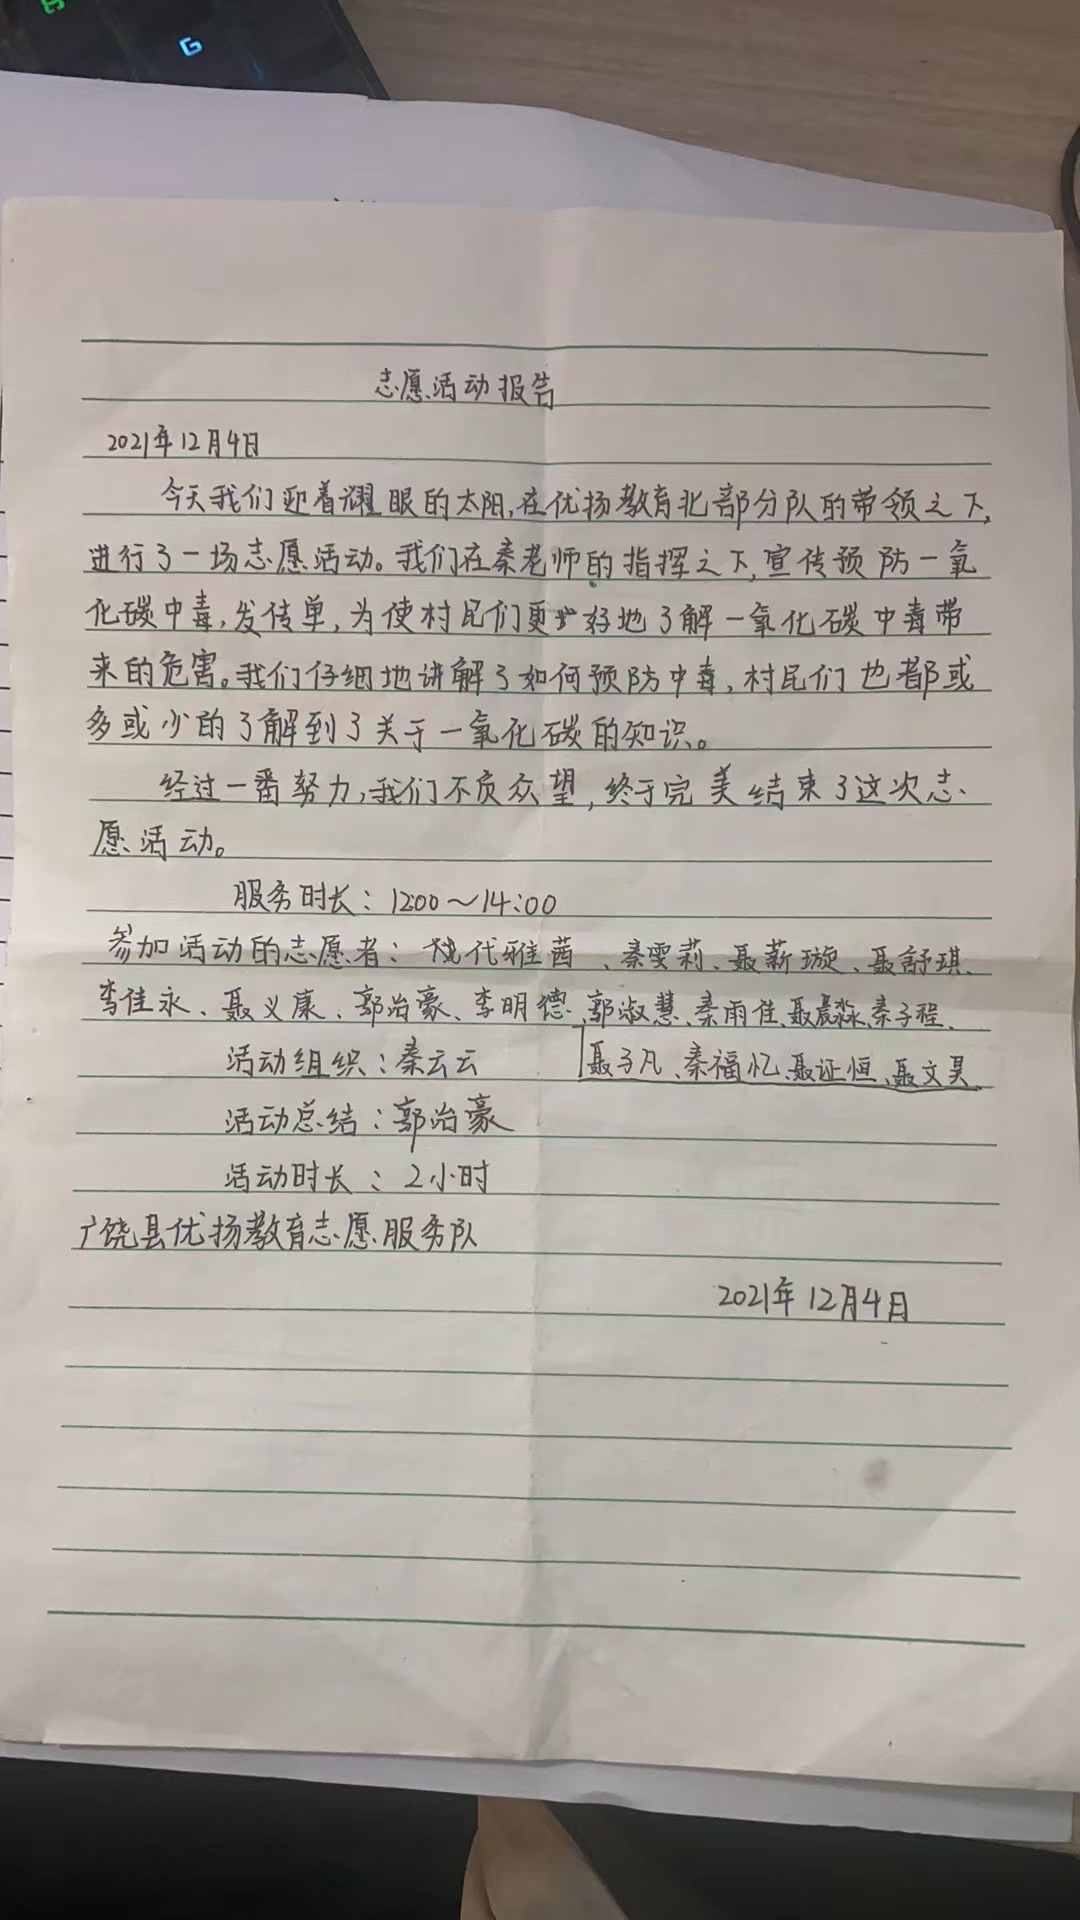 G
志愿活动报告
2021年12月4日
今天我们迎着耀眼的太阳,在优扬教育北部分队的带领之下,
进行了一场志愿活动。我们在秦老师的指挥之下,宣传预防一氧
化碳中毒,发传单,为使村民们更好地了解一氧化碳中毒带
来的危害。我们仔细地讲解了如何预防中毒,村民们也都或
多或少的了解到了关于一氧化碳的知识。
经过一番努力,我们不负众望,终于完美结束了这次志
愿活动。
服务时长:1200~14:00
参加活动的志愿者:代雅茜、秦雯莉、聂薪璇、聂舒琪、
李佳永、聂义康、郭治豪、李明德、郭淑慧、秦雨佳、聂晨淼、秦子程、
聂子凡、秦福忆、聂证恒、聂文昊
活动组织:秦云云
活动总结:郭治豪
活动时长:2小时
广饶县优扬教育志愿服务队
2021年12月4日